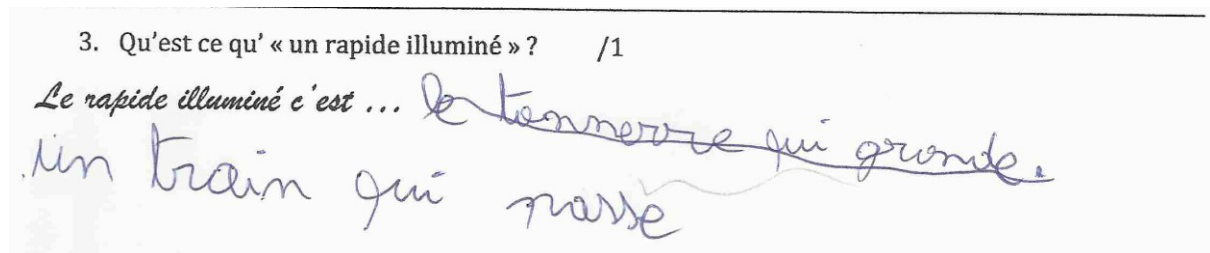 3. Qu'est ce qu' « un rapide illuminé » ? /1
Le rapide illuminé c'est ... le tonnerre qui gronde.
un train qui passe